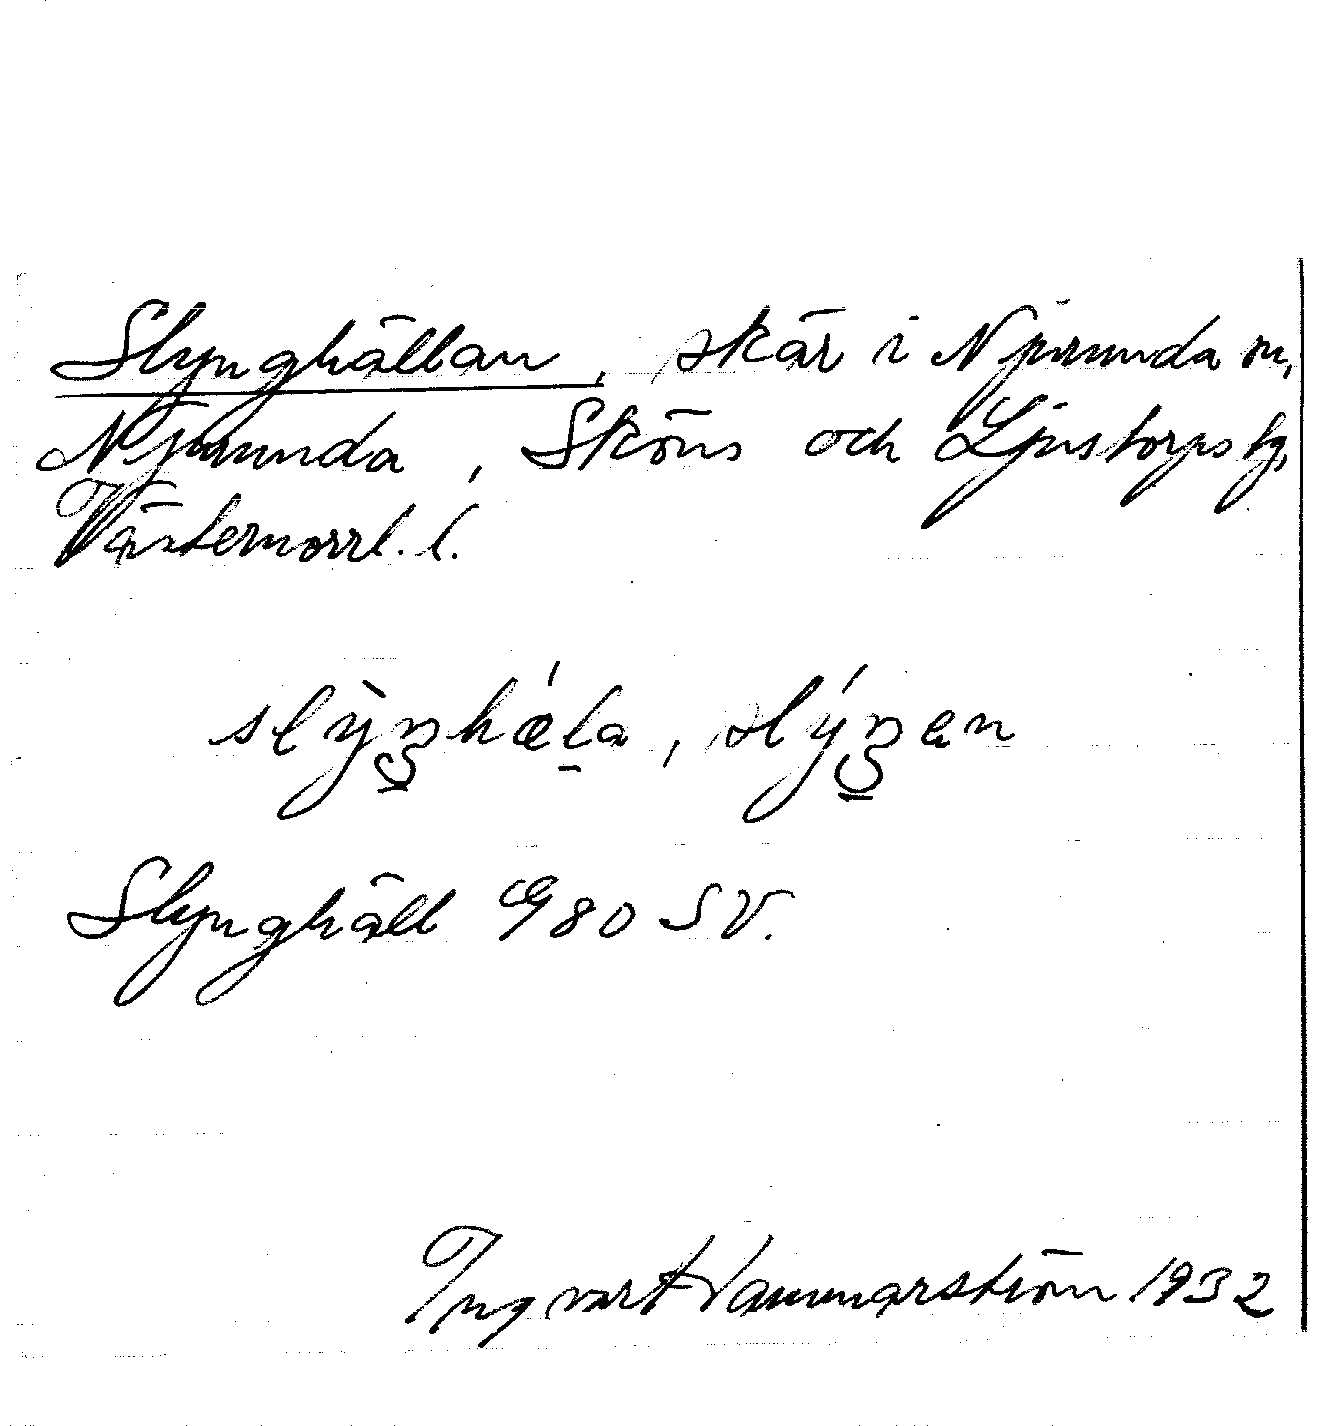 Slynghällan, skär i Njurunda sn,
Njurunda, Sköns och Ljustorps tg,
Västernorrl. l.
slỳŋhǽla, slýŋen
Slynghäll 980 SV.
Ingvart Hammarström 1932